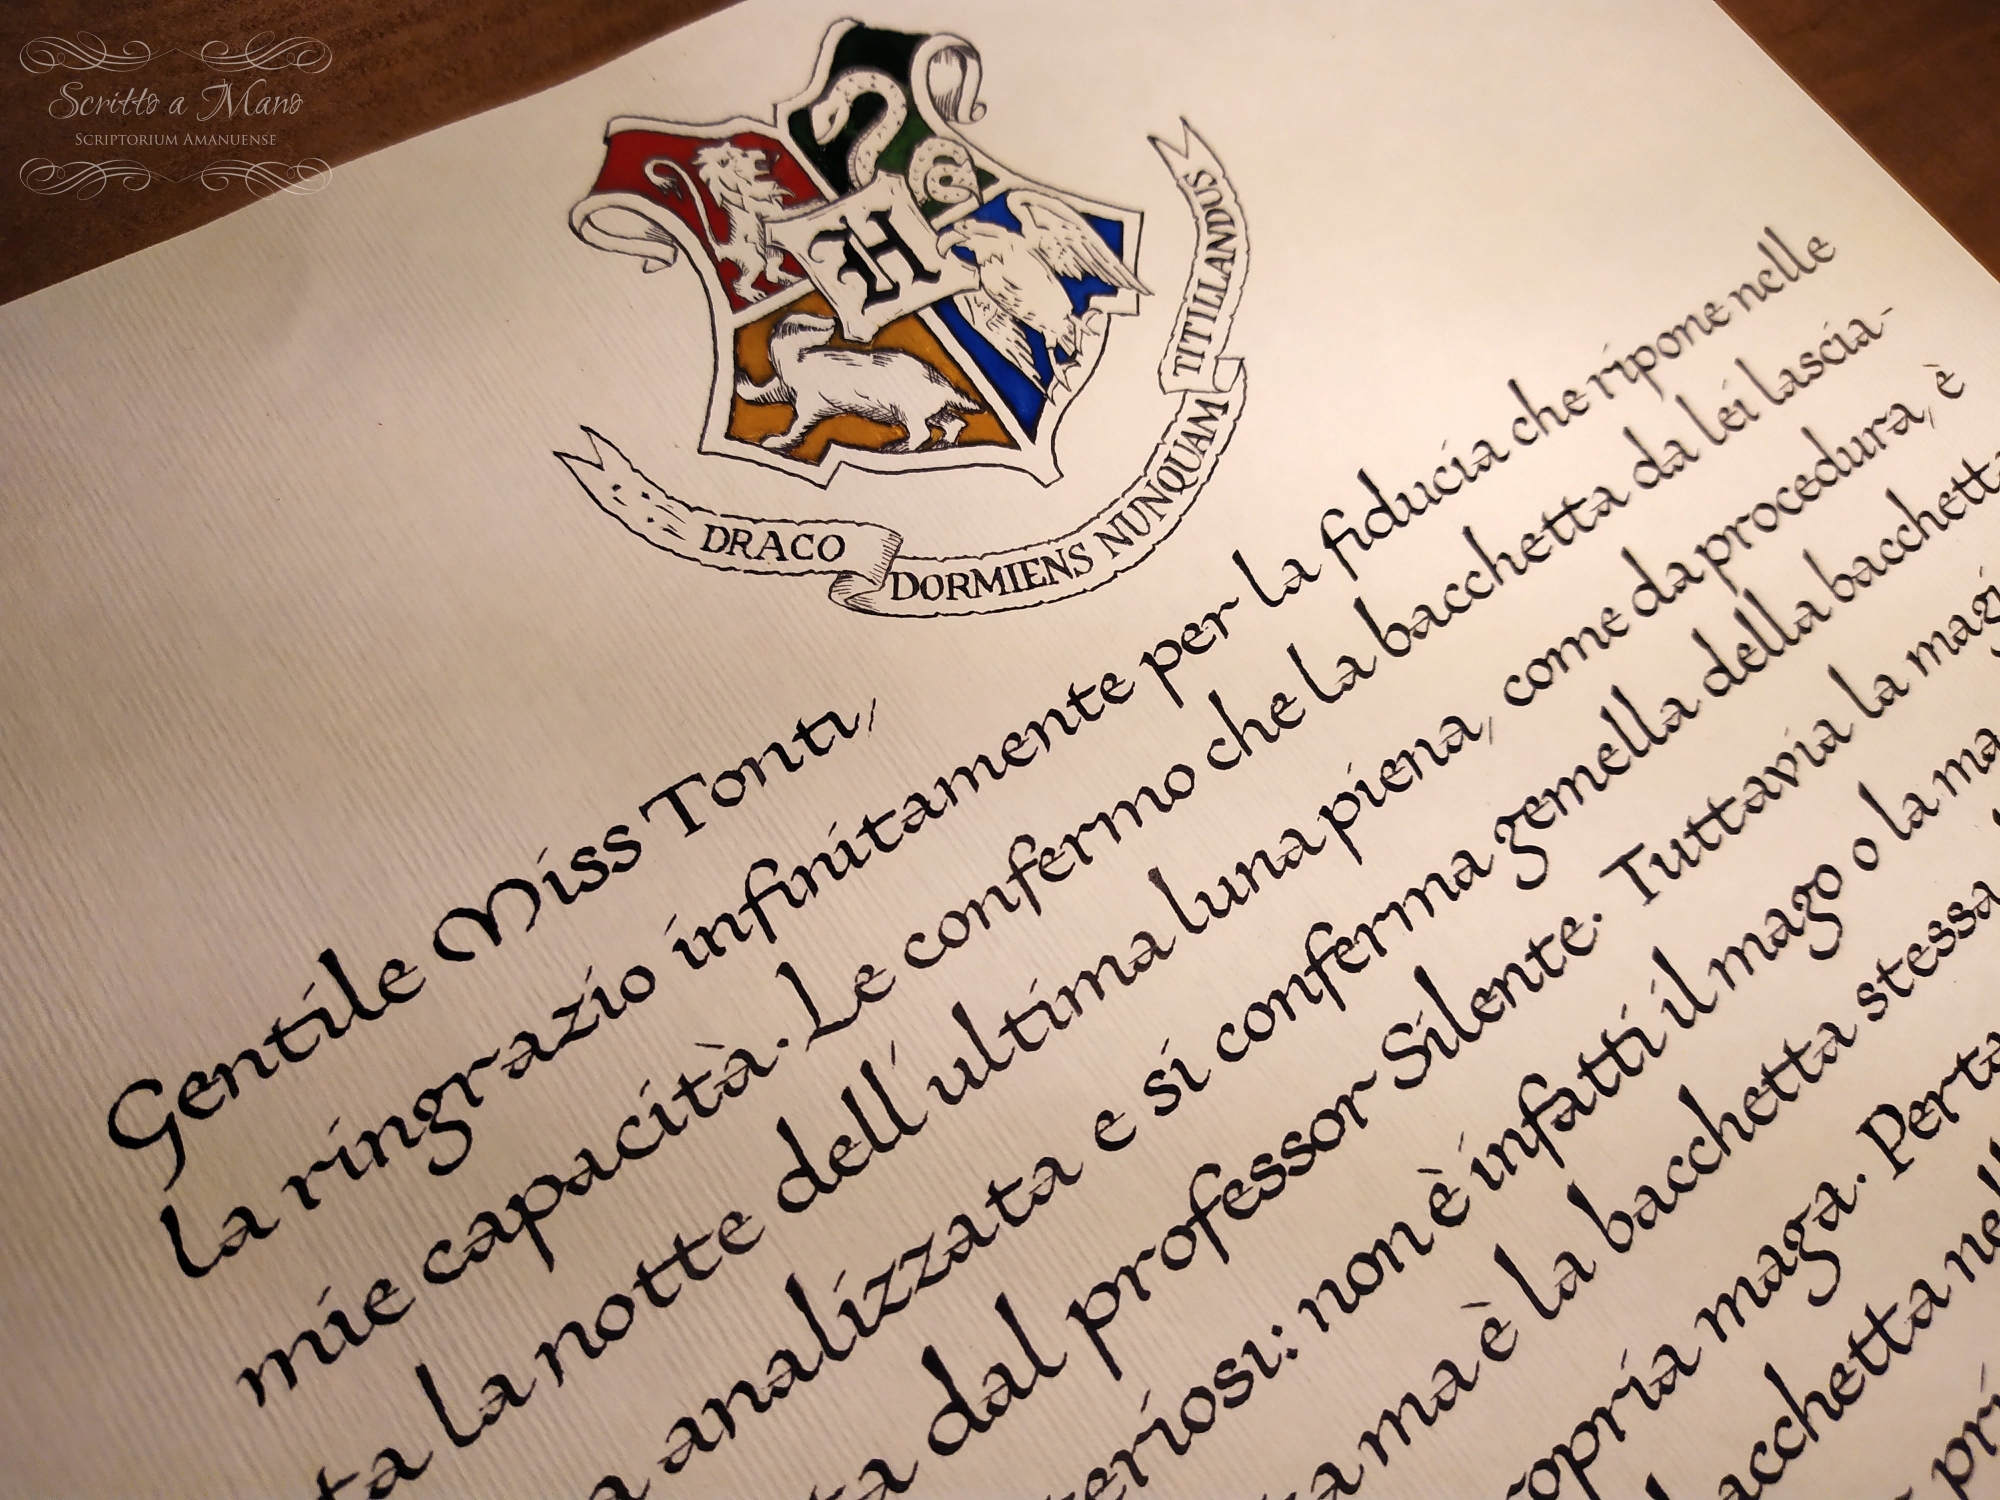 Scritto a Mano
SCRIPTORIUM AMANUENSE
H
DRACO DORMIENS NUNQUAM TITILLANDUS
Gentile Miss Tonti,
la ringrazio infinitamente per la fiducia che ripone nelle
mie capacità. Le confermo che la bacchetta da lei lascia-
ta la notte dell'ultima luna piena, come da procedura, è
analizzata e si conferma gemella della bacchetta
dal professor Silente. Tuttavia la
: non è infatti il mago o la
ma è la bacchetta stessa
maga.
nel